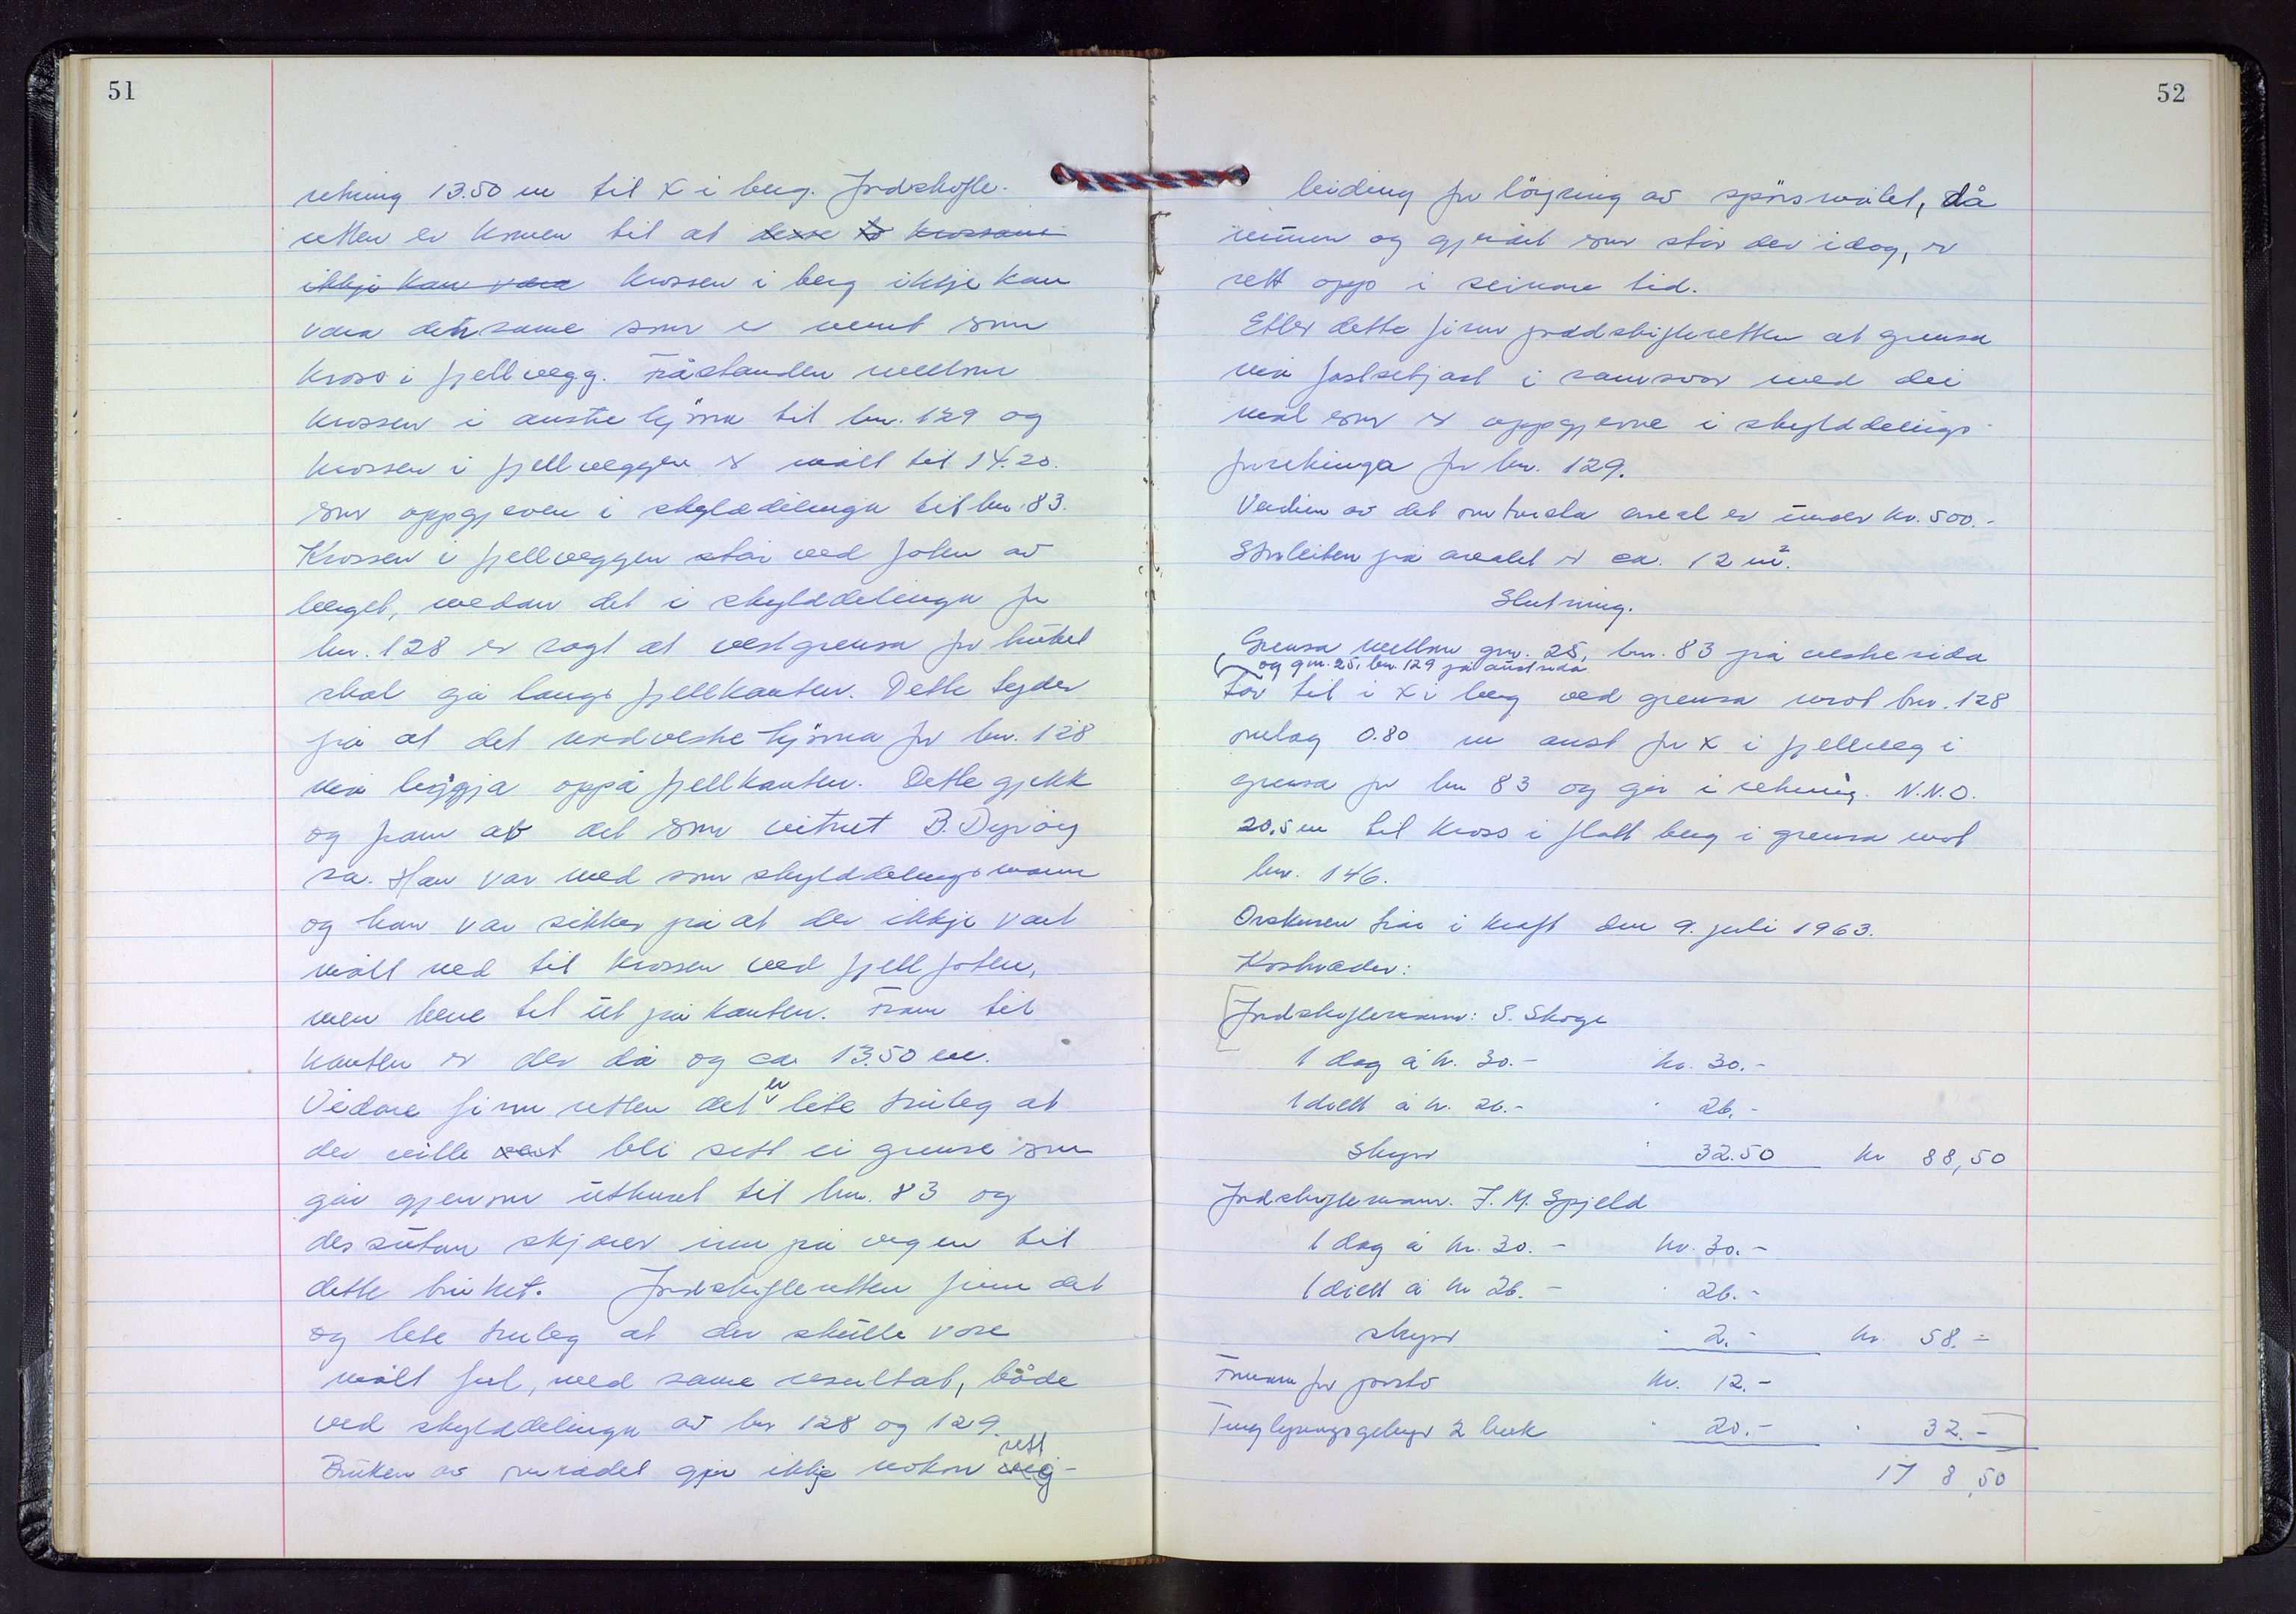 51
retning 13.50 m til x i berg. Jordskifte-
retten er komen til at desse to krossane
ikkje kan vera krossen i berg ikkje kan
vera det same som er nemnt som
kross i fjellvegg. Fråstanden mellom
krossen i austre hjörna til bnr. 129 og
krossen i fjellveggen er målt til 14.20.
som oppgjeven i skylddelinga til bnr. 83.
Krossen i fjellveggen står ved foten av
berget, medan det i skylddelinga for
bnr. 128 er sagt at vestgrensa for bruket
skal gå langs fjellkanten. Dette tyder
på at det nordvestre hjörna for bnr. 128
må liggja oppå fjellkanten. Dette gjekk
og fram av det som vitnet B. Dyröy
sa. Han var med som skylddelingsmann
og han var sikker på at der ikkje vart
målt ned til krossen ved fjellfoten,
men bere til ut på kanten. Fram til
kanten er der då og ca 13.50 m.
Vidare finn retten det er lite truleg at
der ville vart bli sett ei grense som
går gjennom uthuset til bnr. 83 og
dessutan skjærer inn på vegen til
dette bruket. Jordskifteretten finn det
og lite truleg at der skulle vore
målt feil, med same resultat, både
ved skylddelinga av bnr 128 og 129.
Bruken av området gjer ikkje nokon rett veg-
52
leiding for löysing av spörsmålet, då
muren og gjerdet som står der idag, er
sett opp i seinare tid.
Etter dette finn jordskifteretten at grensa
må fastsetjast i samsvar med dei
mål som er oppgjevne i skylddelings-
forretninga for bnr. 129.
Verdien av det omtvista areal er under kr. 500.-
Storleiken på arealet er ca. 12 m².
Slutning.
Grensa mellom gnr. 25, bnr. 83 på vestre sida
og gnr. 25, bnr. 129 på austsida
tar til i x i berg ved grensa mot bnr. 128
omlag 0.80 m aust for x i fjellveg i
grensa for bnr 83 og går i retning N.N.O.
20,5 m til kross i flatt berg i grensa mot
bnr. 146.
Orskurden trår i kraft den 9. juli 1963.
Kostnader:
Jordskiftemann: S. Skoge
1 dag à kr. 30.- kr. 30.-
1 diett à kr. 26.- " 26.-
Skyss " 32.50 kr 88,50
Jordskiftemann. J. M. Spjeld
1 dag à kr. 30.- kr. 30.-
1 diett à kr 26.- " 26.-
skyss " 2.- kr. 58.-
Frimerk for porto kr. 12.-
Tinglysingsgebyr 2 bruk " 20.- " 32.-
178,50